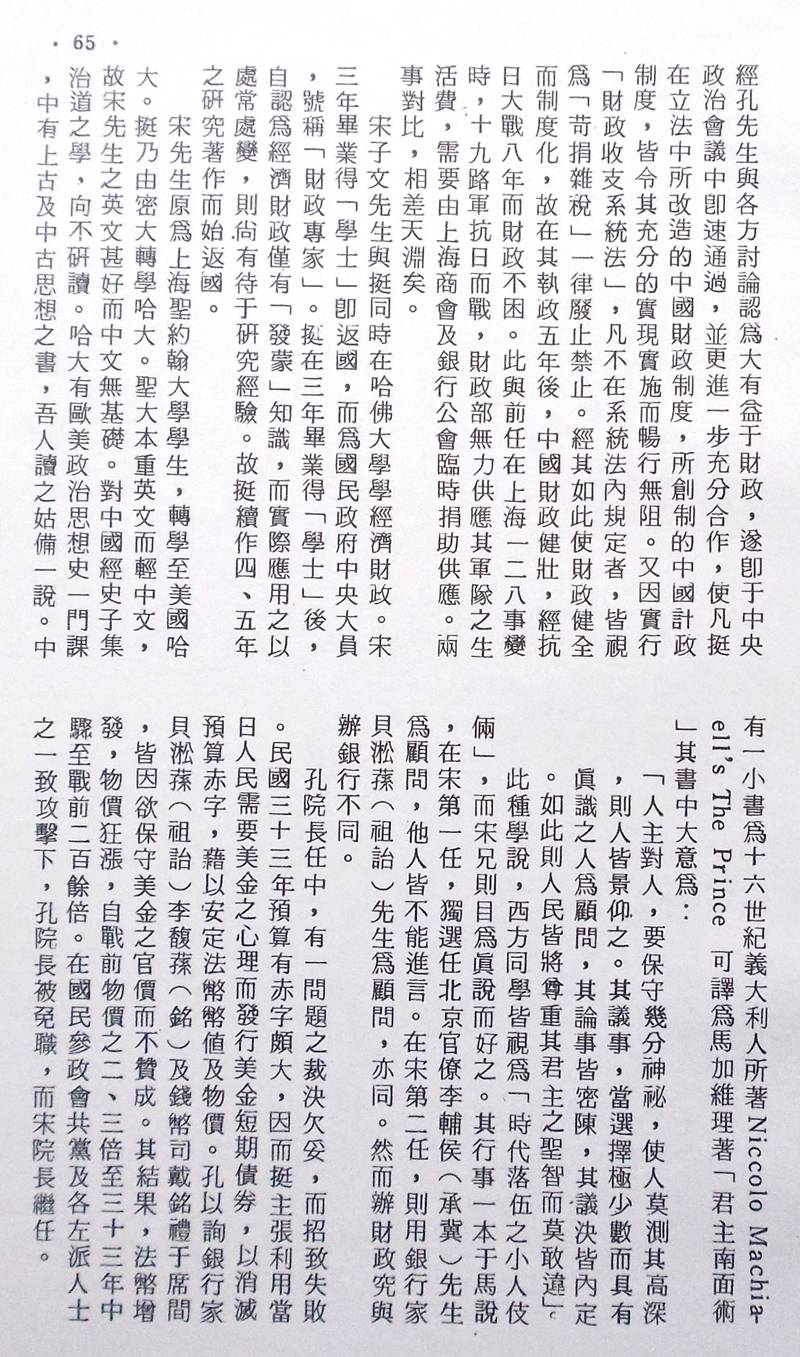 • 65 •
經孔先生與各方討論認爲大有益于財政，遂卽于中央
政治會議中卽速通過，並更進一步充分合作，使凡挺
在立法中所改造的中國財政制度，所創制的中國計政
制度，皆令其充分的實現實施而暢行無阻。又因實行
「財政收支系統法」，凡不在系統法內規定者，皆視
爲「苛捐雜稅」一律廢止禁止。經其如此使財政健全
而制度化，故在其執政五年後，中國財政健壯，經抗
日大戰八年而財政不困。此與前任在上海一二八事變
時，十九路軍抗日而戰，財政部無力供應其軍隊之生
活費，需要由上海商會及銀行公會臨時捐助供應。兩
事對比，相差天淵矣。
宋子文先生與挺同時在哈佛大學學經濟財政。宋
三年畢業得「學士」卽返國，而爲國民政府中央大員
，號稱「財政專家」。挺在三年畢業得「學士」後，
自認爲經濟財政僅有「發蒙」知識，而實際應用之以
處常處變，則尙有待于硏究經驗。故挺續作四、五年
之硏究著作而始返國。
宋先生原爲上海聖約翰大學學生，轉學至美國哈
大。挺乃由密大轉學哈大。聖大本重英文而輕中文，
故宋先生之英文甚好而中文無基礎。對中國經史子集
治道之學，向不硏讀。哈大有歐美政治思想史一門課
，中有上古及中古思想之書，吾人讀之姑備一說。中
有一小書爲十六世紀義大利人所著Niccolo Machia-
ell's The Prince 可譯爲馬加維理著「君主南面術
」其書中大意爲：
「人主對人，要保守幾分神祕，使人莫測其高深
，則人皆景仰之。其議事，當選擇極少數而具有
眞識之人爲顧問，其論事皆密陳，其議決皆內定
。如此則人民皆將尊重其君主之聖智而莫敢違」。
此種學說，西方同學皆視爲「時代落伍之小人伎
倆」，而宋兄則目爲眞說而好之。其行事一本于馬說
，在宋第一任，獨選任北京官僚李輔侯（承冀）先生
爲顧問，他人皆不能進言。在宋第二任，則用銀行家
貝淞蓀（祖詒）先生爲顧問，亦同。然而辦財政究與
辦銀行不同。
孔院長任中，有一問題之裁決欠妥，而招致失敗
。民國三十三年預算有赤字頗大，因而挺主張利用當
日人民需要美金之心理而發行美金短期債券，以消滅
預算赤字，藉以安定法幣幣値及物價。孔以詢銀行家
貝淞蓀（祖詒）李馥蓀（銘）及錢幣司戴銘禮于席間
，皆因欲保守美金之官價而不贊成。其結果，法幣增
發，物價狂漲，自戰前物價之二、三倍至三十三年中
驟至戰前二百餘倍。在國民參政會共黨及各左派人士
之一致攻擊下，孔院長被免職，而宋院長繼任。